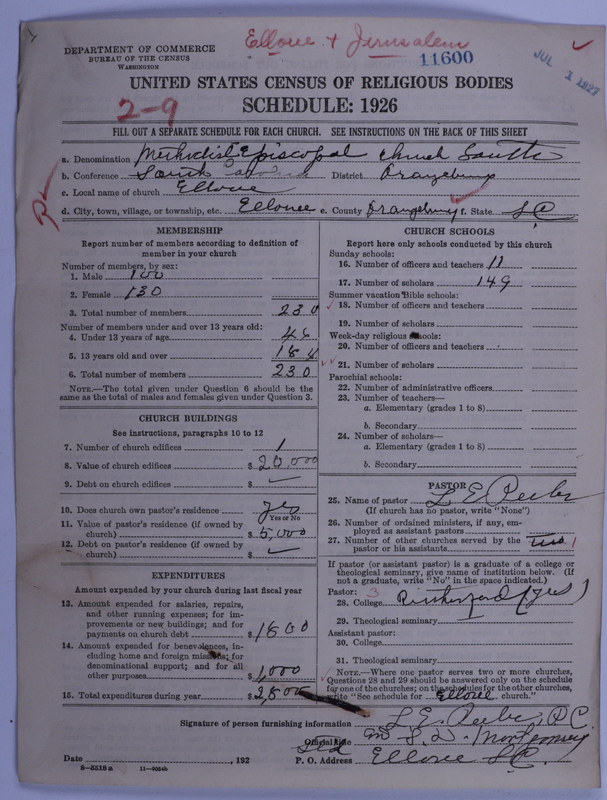 Elloree + Jerusalem
DEPARTMENT OF COMMERCE
BUREAU OF THE CENSUS
WASHINGTON
11600
JUL 1 1927
UNITED STATES CENSUS OF RELIGIOUS BODIES
2-9
SCHEDULE: 1926
FILL OUT A SEPARATE SCHEDULE FOR EACH CHURCH. SEE INSTRUCTIONS ON THE BACK OF THIS SHEET
a. Denomination Methodist Episcopal Church South
b. Conference South Carolina District Orangeburg
c. Local name of church Elloree
d. City, town, village, or township, etc. Elloree e. County Orangeburg f. State S C
MEMBERSHIP
Report number of members according to definition of member in your church
Number of members, by sex:
1. Male 100
2. Female 130
3. Total number of members 230
Number of members under and over 13 years old:
4. Under 13 years of age 46
5. 13 years old and over 184
6. Total number of members 230
NOTE.—The total given under Question 6 should be the
same as the total of males and females given under Question 3.
CHURCH BUILDINGS
See instructions, paragraphs 10 to 12
7. Number of church edifices 1
8. Value of church edifices $ 20,000
9. Debt on church edifices $
10. Does church own pastor's residence yes
Yes or No
11. Value of pastor's residence (if owned by
church) $ 5,000
12. Debt on pastor's residence (if owned by
church) $
EXPENDITURES
Amount expended by your church during last fiscal year
13. Amount expended for salaries, repairs,
and other running expenses; for im-
provements or new buildings; and for
payments on church debt $ 1800
14. Amount expended for benevolences, in-
cluding home and foreign missions; for
denominational support; and for all
other purposes $ 1000
15. Total expenditures during year $ 2,800
CHURCH SCHOOLS
Report here only schools conducted by this church
Sunday schools:
16. Number of officers and teachers 11
17. Number of scholars 149
Summer vacation Bible schools:
18. Number of officers and teachers
19. Number of scholars
Week-day religious schools:
20. Number of officers and teachers
21. Number of scholars
Parochial schools:
22. Number of administrative officers
23. Number of teachers—
a. Elementary (grades 1 to 8)
b. Secondary
24. Number of scholars—
a. Elementary (grades 1 to 8)
b. Secondary
PASTOR
25. Name of pastor L E Peeler
(If church has no pastor, write "None")
26. Number of ordained ministers, if any, em-
ployed as assistant pastors
27. Number of other churches served by the
pastor or his assistants two 1
If pastor (or assistant pastor) is a graduate of a college or
theological seminary, give name of institution below. (If
not a graduate, write "No" in the space indicated.)
Pastor: 3
28. College Rutherford (yes)
29. Theological seminary
Assistant pastor:
30. College
31. Theological seminary
NOTE.—Where one pastor serves two or more churches,
Questions 28 and 29 should be answered only on the schedule
for one of the churches; on the schedules for the other churches,
write "See schedule for Elloree church."
Signature of person furnishing information L E Peeler, P.C.
Official title
Date , 192 P. O. Address Elloree S C
8—5518 a 11—9054b